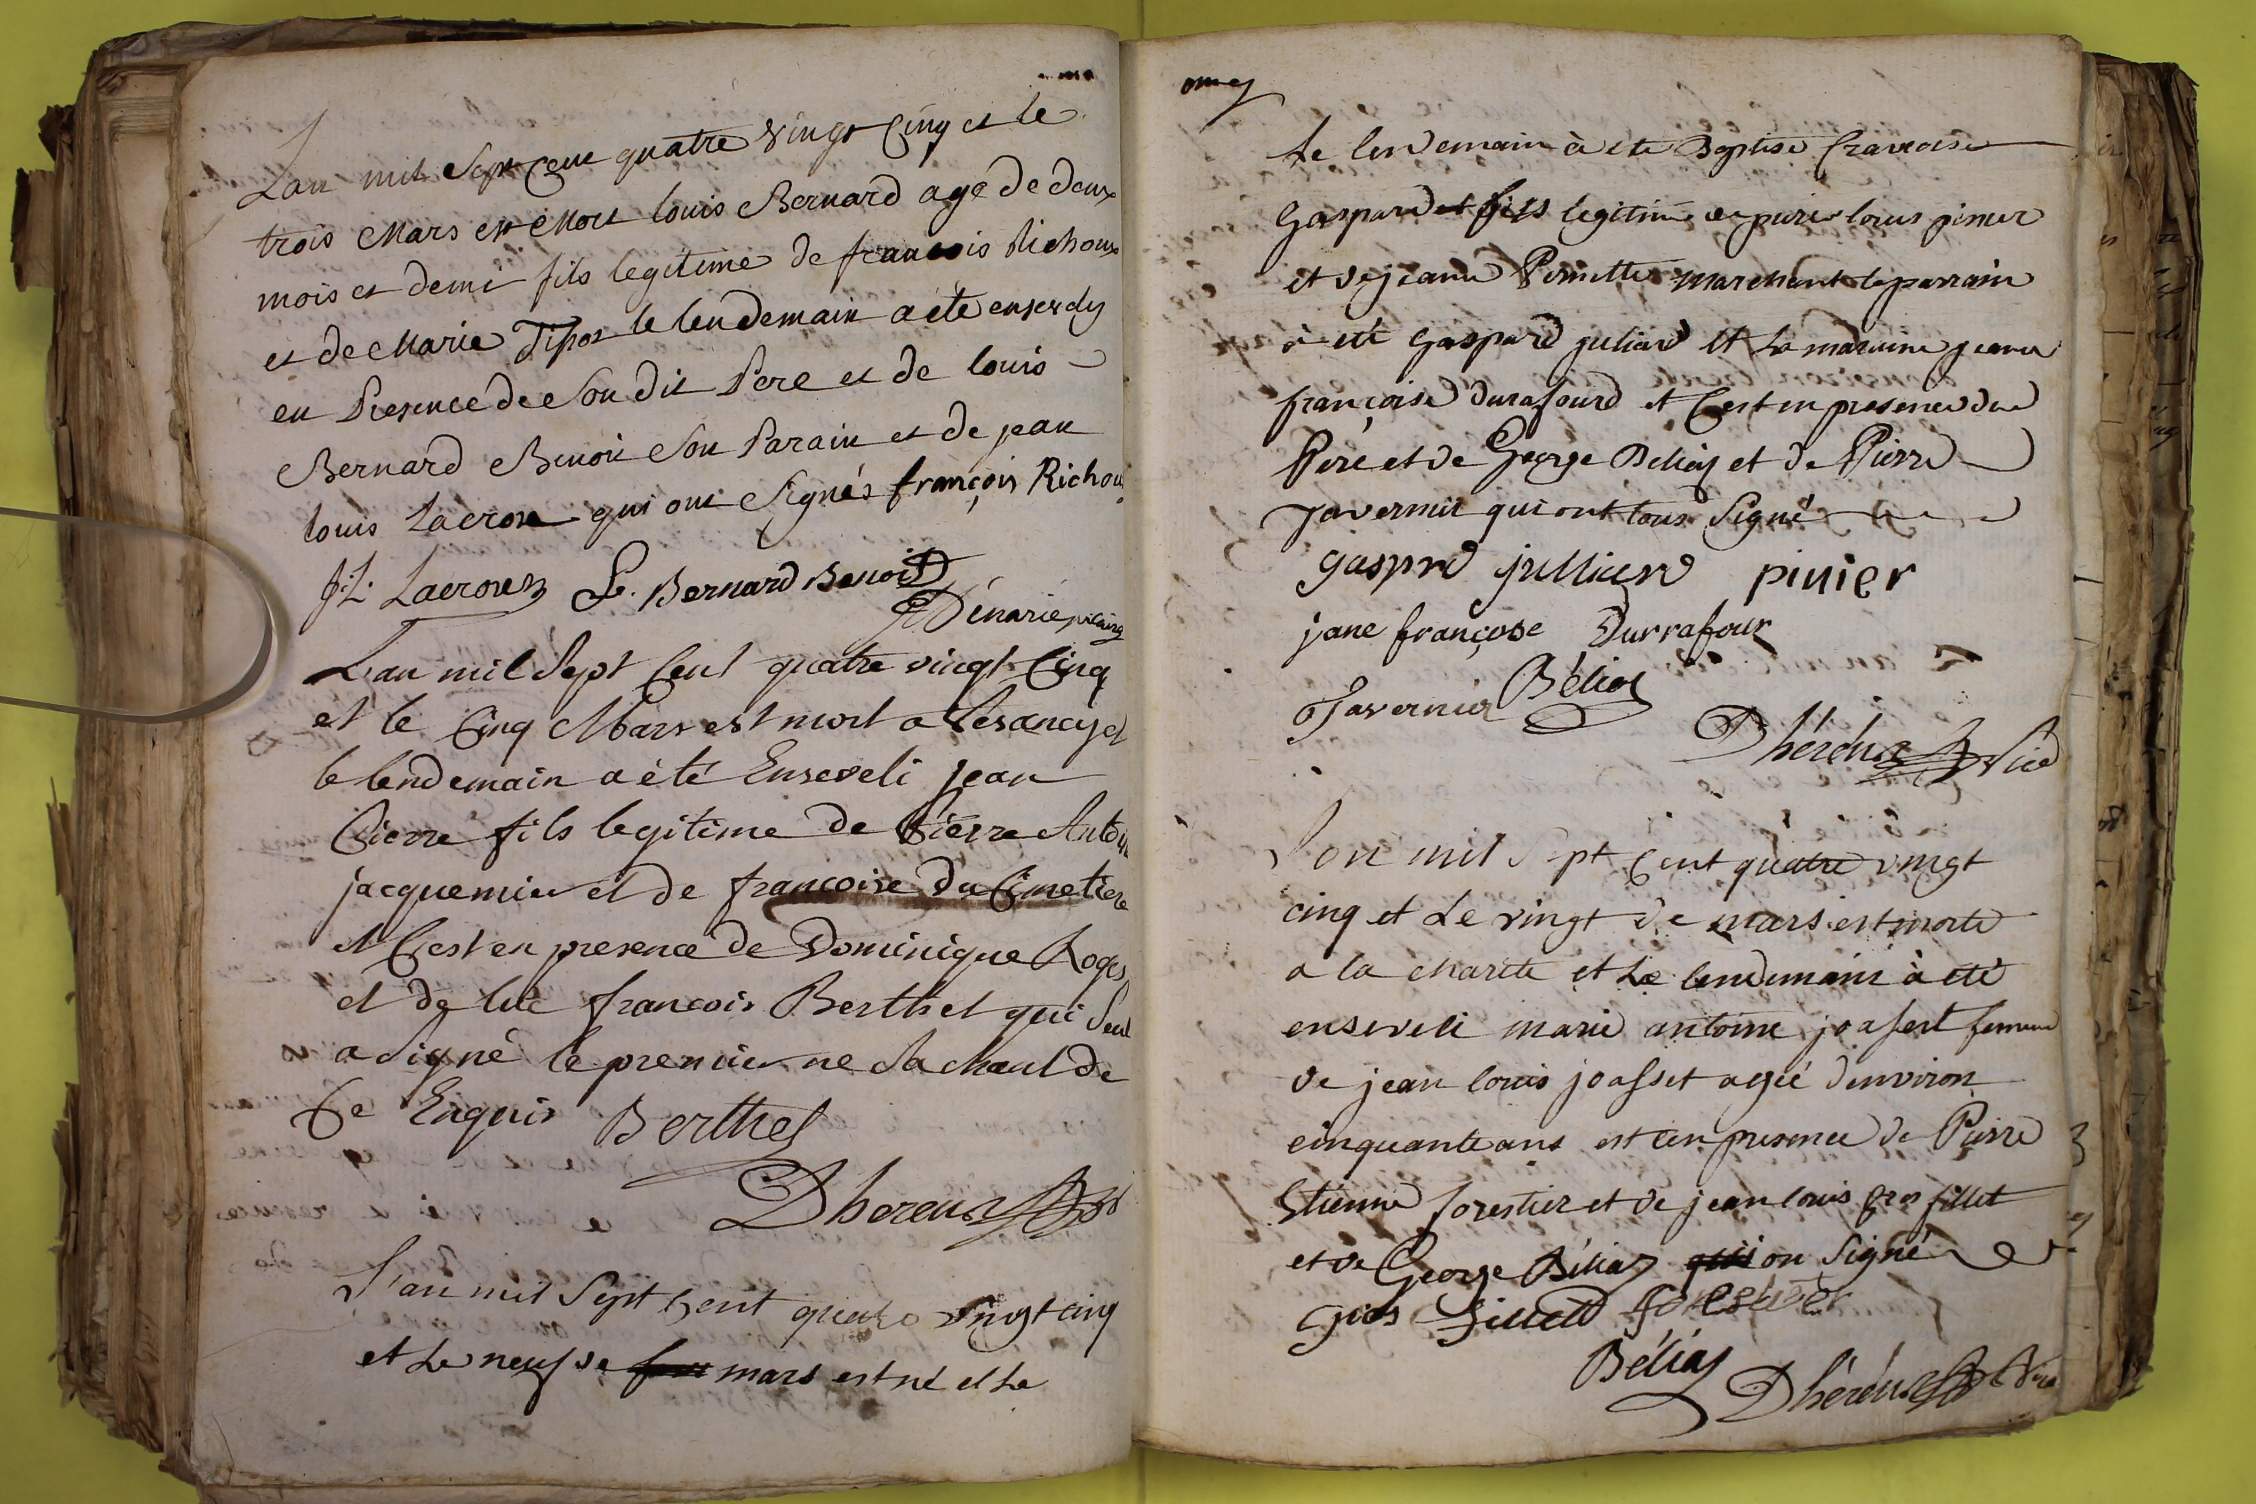 Lan mil Sept Cent quatre vingt Cinq et le
trois Mars est Mort louis Bernard agé de deux
mois et demi fils legitime de francois Richoux
et de Marie le lendemain a été
en Presence de Son dit Pere et de louis
Bernard Benoit Son Parain et de jean
louis Lacroix qui ont Signés françois Richou
J: L: Lacroix L. Bernard Benoit
Dénarié vicaire
L'an mil Sept Cent quatre vingt Cinq
et le Cinq Mars est mort a et
le lendemain a été Enseveli jean
Pierre fils legitime de Pierre Antoin
jacquemier et de françoise Du Cimetiere
et C'est en presence de Dominique Roges
et de luc françois Berthet qui Seul
a Signé le premier ne Sachant de
Ce Enquis Berthet
Dhereus
L'an mil Sept Cent quatre vingt cinq
et Le neuf de mars est né et Le
Le lendemain à été Baptisé francoise
Gaspard et fils legitime de pierre louis pinier
et de jeanne Pernette marchant le parrain
à eté Gaspard juliard et La maraine jeane
françoise durafourd et C'est en presence du
Pere et de George Béliaz et de Pierre
Tavernier qui ont tous Signé
gasprd jullierd pinier
jane françose Durrafour
Tavernier Béliaz
Dhéréus Vicé
L'an mil Sept Cent quatre vingt
cinq et Le vingt de mars est morte
a la charité et Le lendemain à eté
enseveli marie antoine joasset femme
de jean louis joasset agée d'environ
cinquante ans est c'en presence de Pierre
Etienne forestier et de jean louis gros fillet
et de George Béliaz qui on Signé
gros fillet forestier
Béliaz Dhéréus Vicé